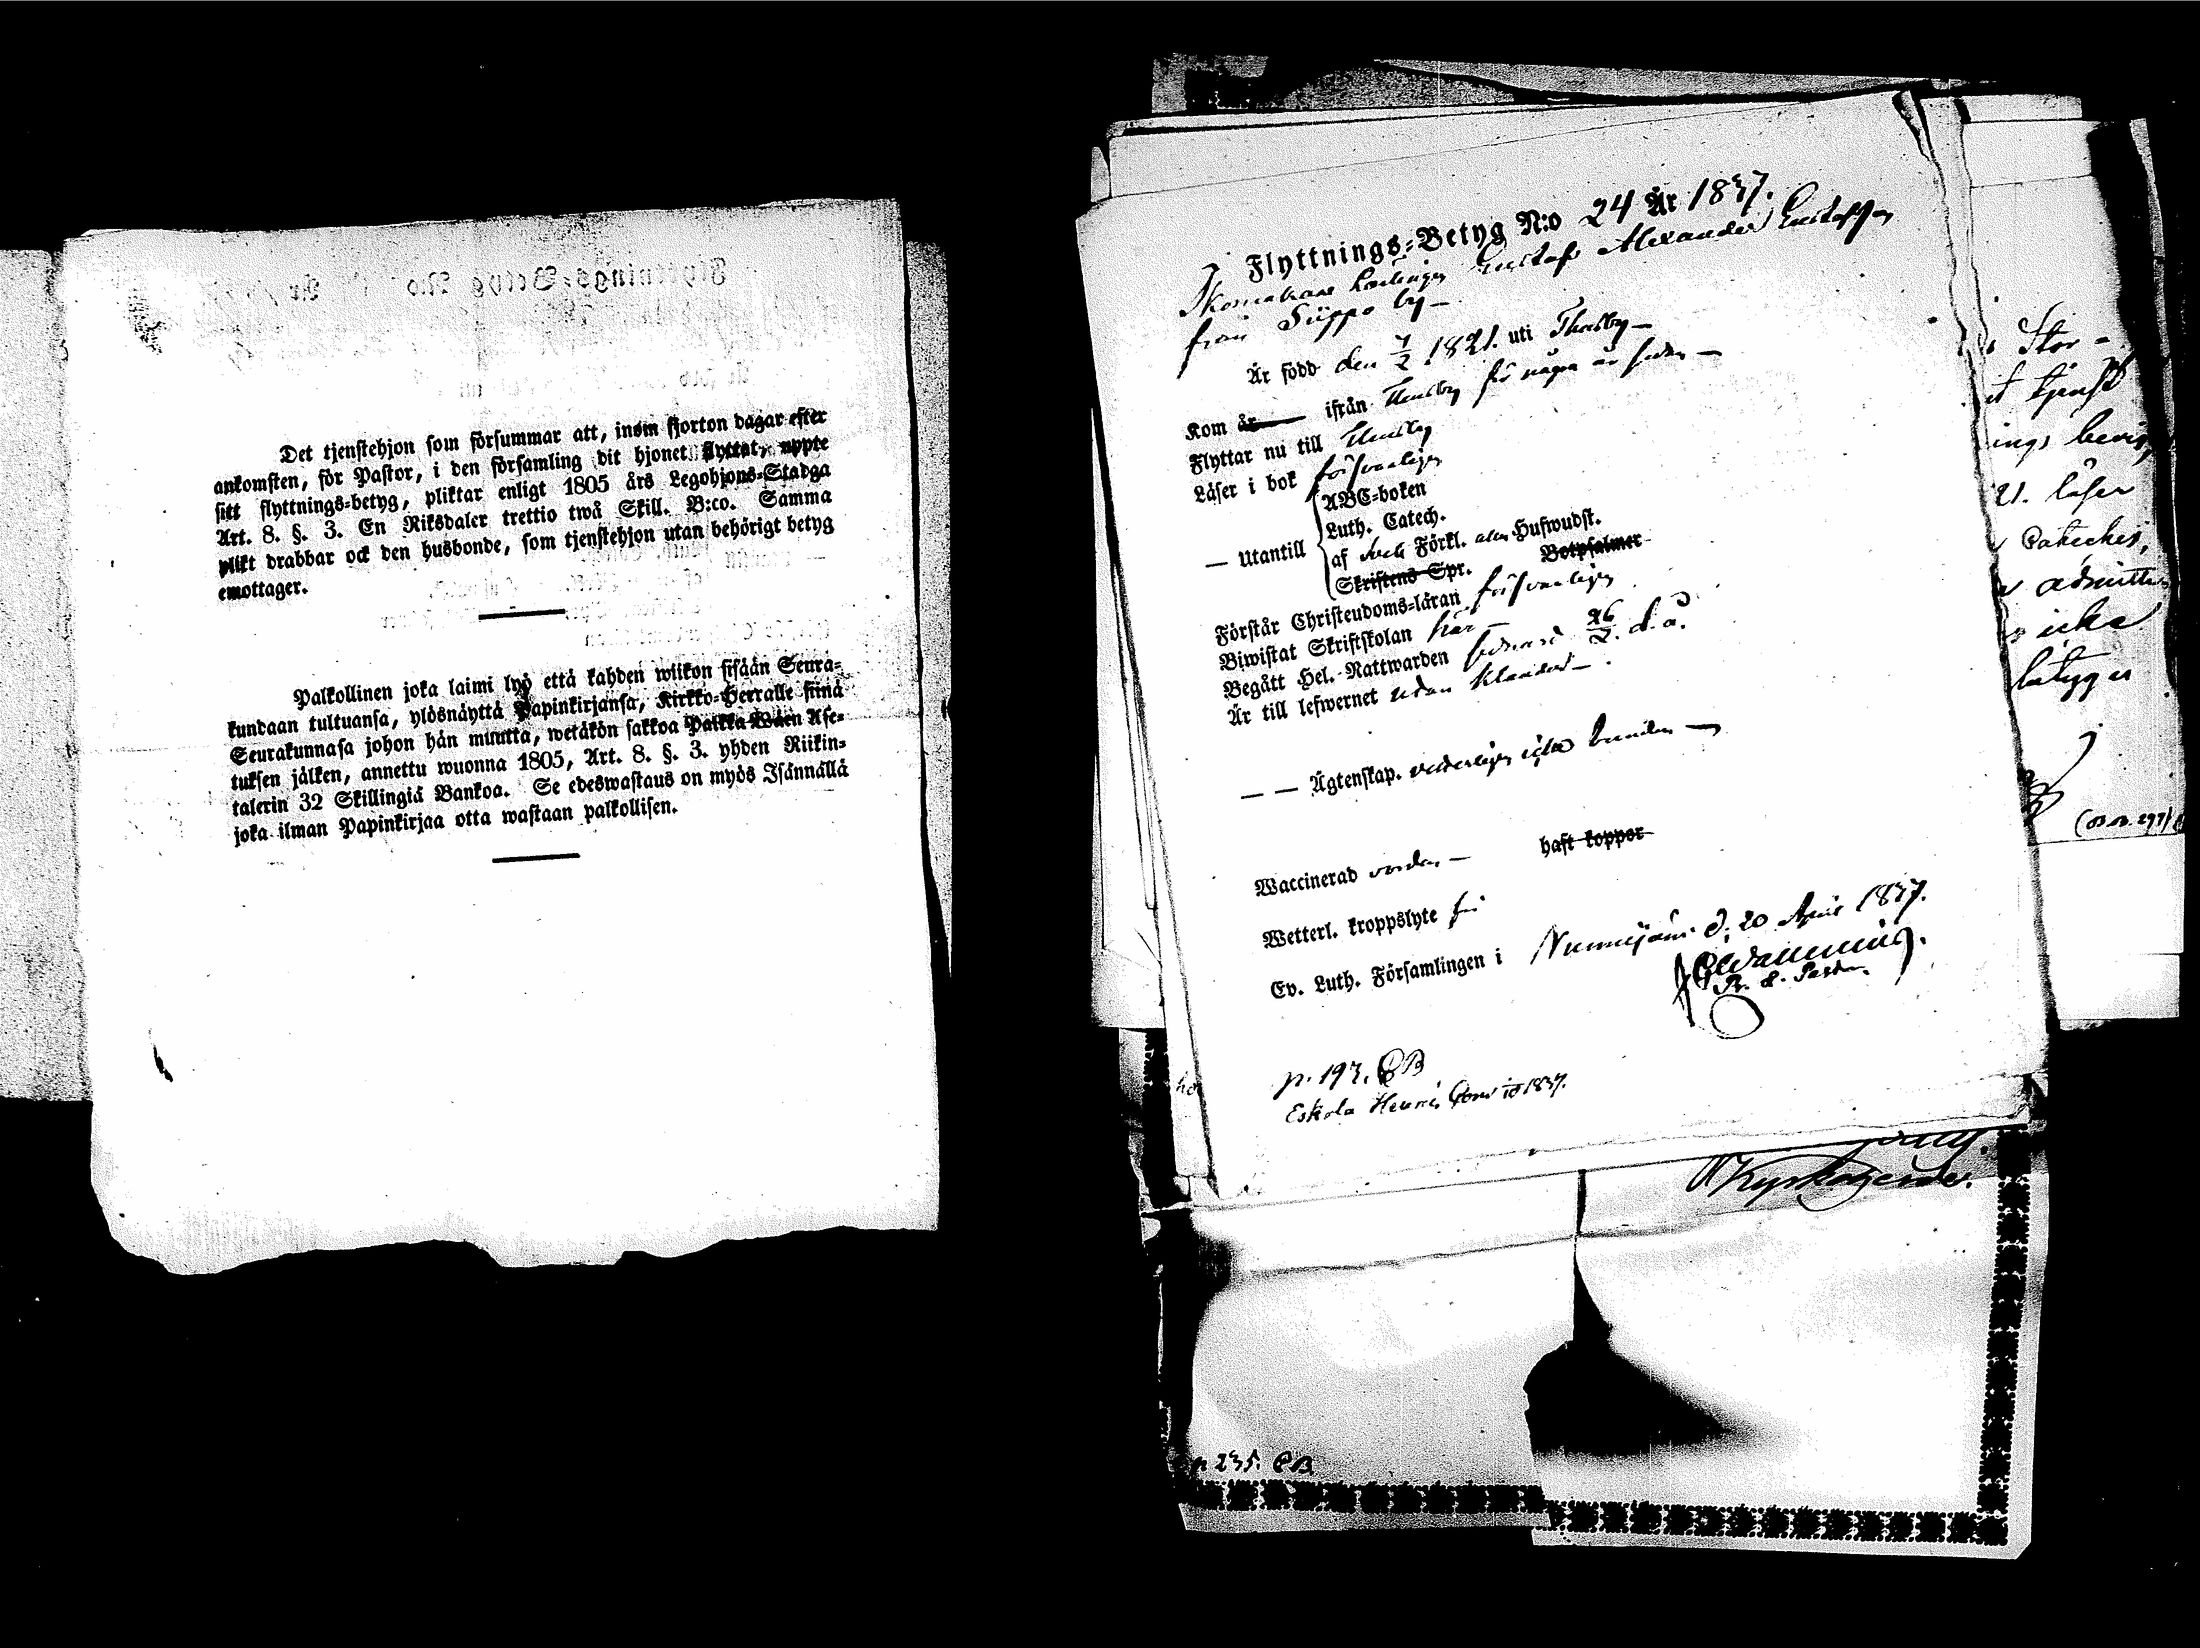 Det tjenstehjon som försummar att, inom fjorton dagar efter
ankomsten, för Pastor, i den församling dit hjonet flyttat, uppte
sitt flyttnings=betyg, pliktar enligt 1805 års Legohjons=Stadga
Art. 8. §. 3. En Riksdaler trettio twå Skill. B:co. Samma
plikt drabbar ock den husbonde, som tjenstehjon utan behörigt betyg
emottager.
Palkollinen joka laimi lyö että kahden wiikon sisään Seura=
kundaan tultuansa, ylösnäyttä Papinkirjansa, Kirkko=Herralle siinä
Seurakunnasa johon hän muutta, wetäkön sakkoa Palkka Wäen Ase=
tuksen jälken, annettu wuonna 1805, Art. 8. §. 3. yhden Riikin=
talerin 32 Skillingiä Bankoa. Se edeswastaus on myös Isännällä
joka ilman Papinkirjaa otta wastaan palkollisen.
Flyttnings=Betyg N:o 24 År 1837.
Skomakare Lärlingen Gustaf Alexander Gustafsson
från Siippo by —
Är född den 7/2 1821. uti Thusby —
Kom år ifrån Thusby för några år sedan —
Flyttar nu till Thusby
Läser i bok försvarligen
ABC=boken
Luth. Catech.
— Utantill af Förkl. Hufwudst.
Skriftens Spr. Botpsalmer
Förstår Christendoms=läran försvarligen
Biwistat Skriftskolan här —
Begått Hel. Nattwarden senast 26/2. d. å.
Är till lefwernet utan klander — .
— — Ägtenskap. veterligen icke bunden —
Waccinerad worden — haft koppor
Wetterl. kroppslyte fri
Ev. Luth. Församlingen i Nummijärvi d. 20 April 1837.
p. 193. CB
Eskola Henric 1837.
Stor-
tjenst
ings bevis,
21. läser
Cateches,
icke
betyg
p 235. CB